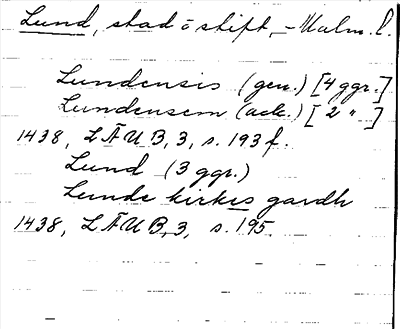 Lund, stad o stift, – Malm. l.
Lundensis (gen.) [4 ggr.]
Lundensem (ack.) [2 " ]
1438, LÄUB, 3, s. 193 f.
Lund (3 ggr.)
Lunde kirkis gardh
1438, LÄUB, 3, s. 195.